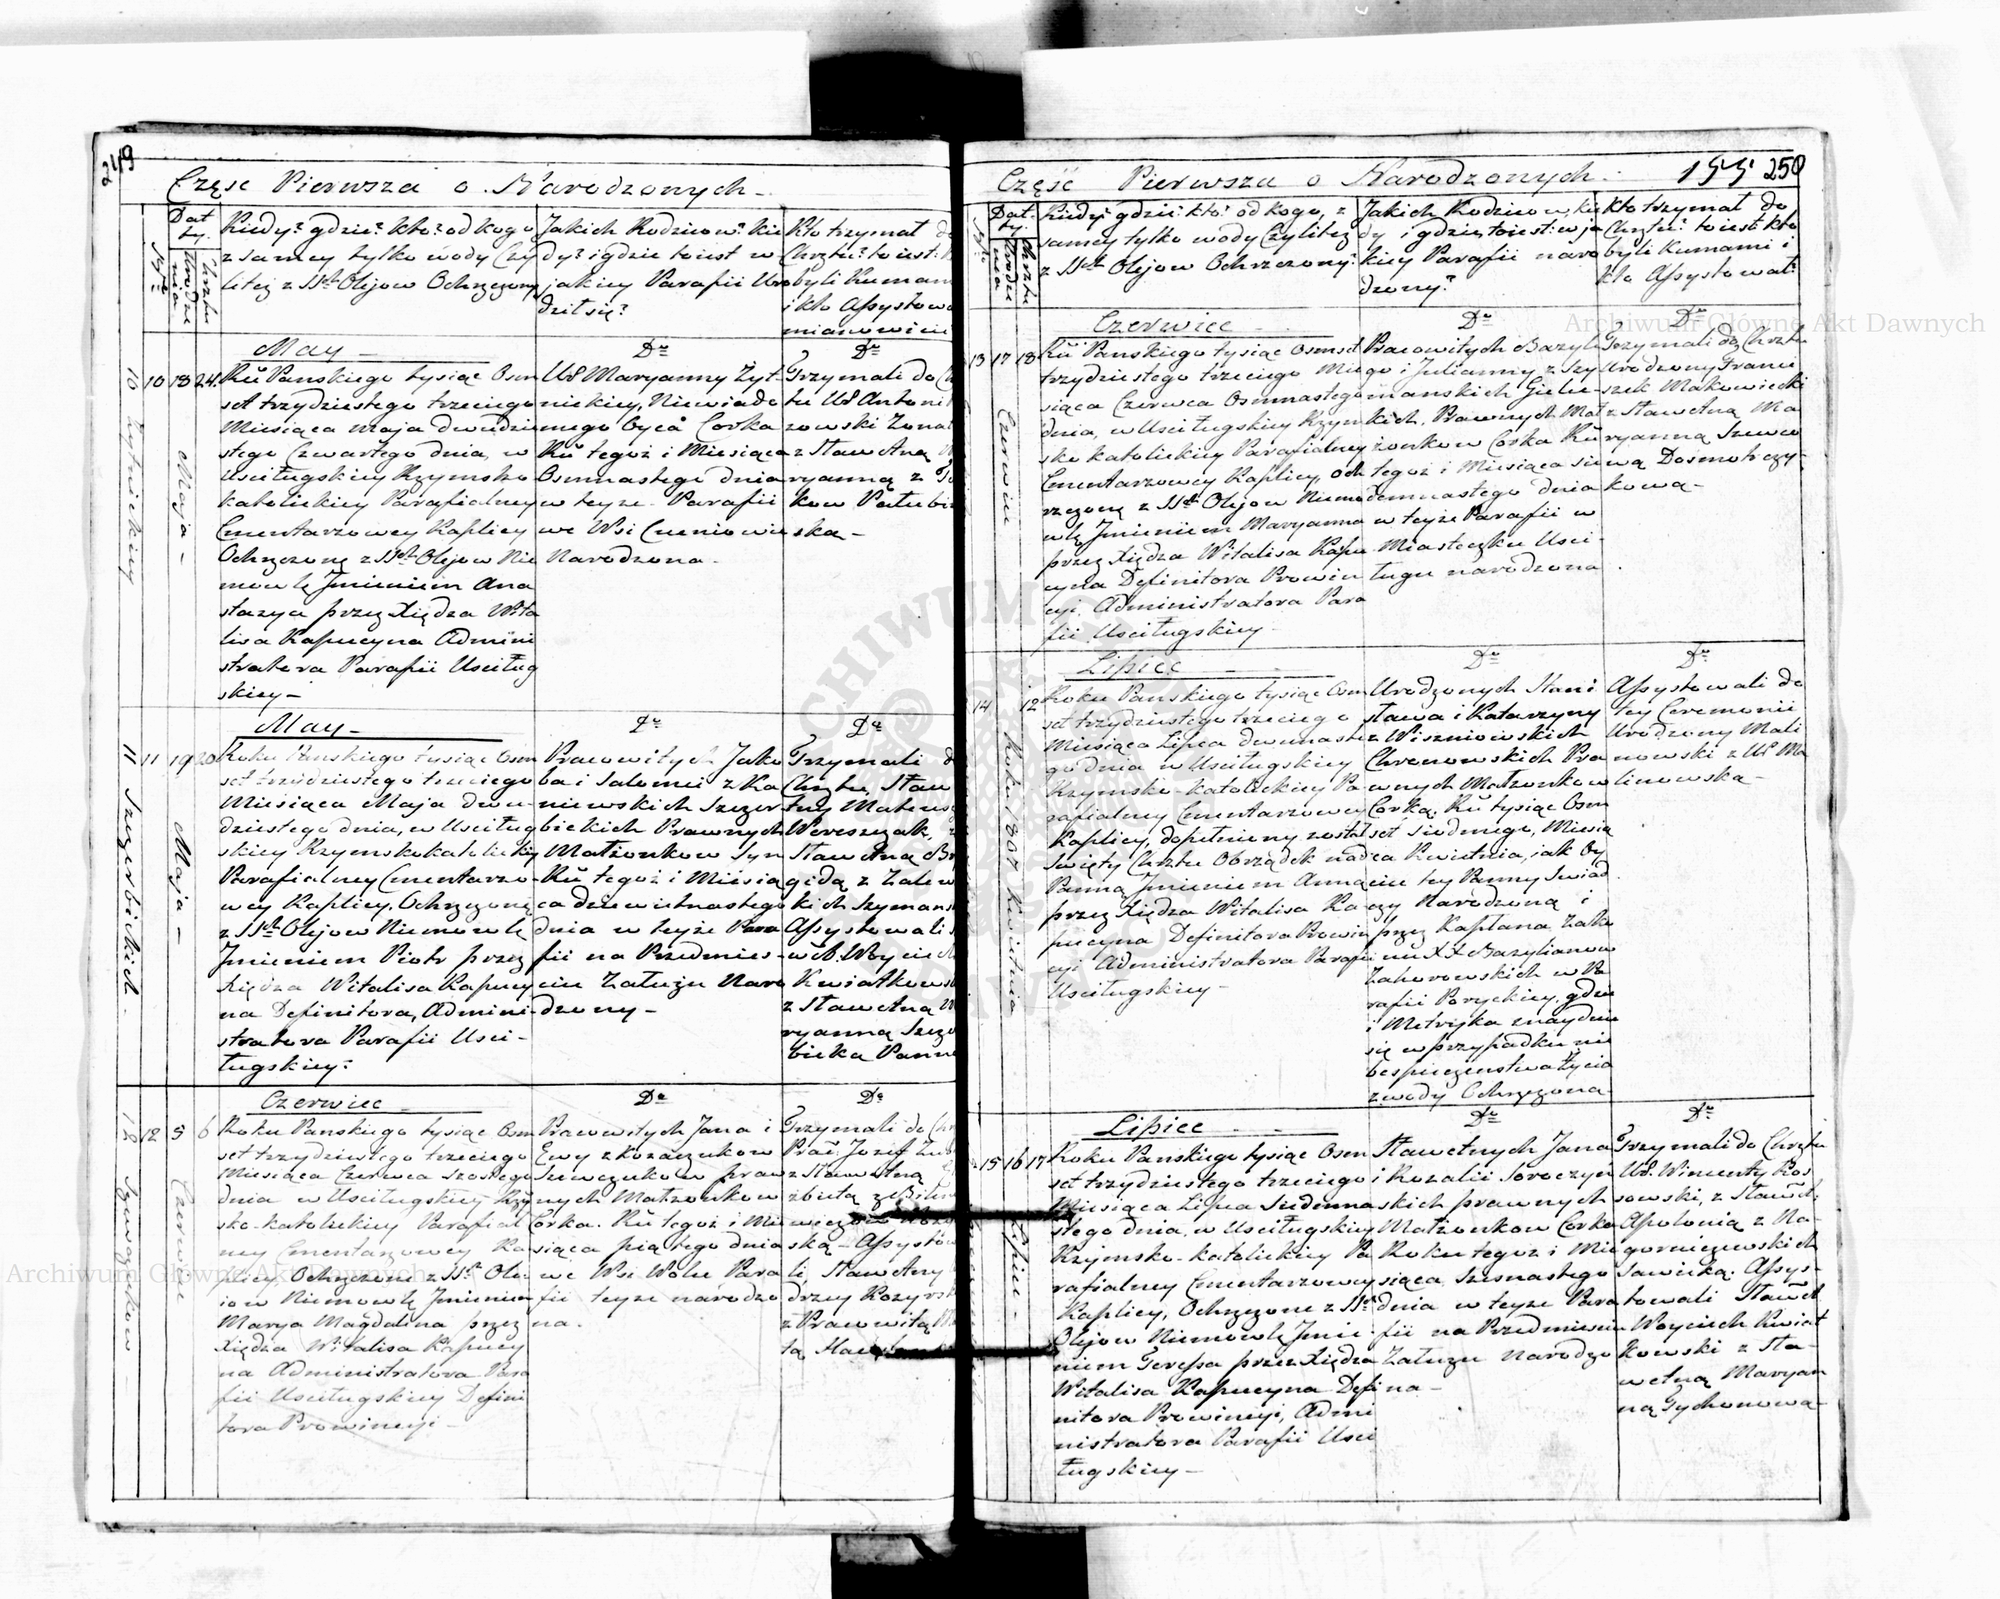 249
Część Pierwsza o Narodzonych
Nro
Daty
Urodzenia
Chrztu
Kiedy? gdzie? kto? od kogo
z samey tylko wody Czy
liteż z SSch Olejow Ochrzczony
Jakich Rodziców? kie
dy? i gdzie to iest w
jakiey Parafii Uro
dził się?
Kto trzymał do
Chrztu? to iest:
byli Kumam
i kto Assystowa
mianowicie
May
Do
Do
10 10 18 24
Żytnickiey
Maja
Ru Panskiego tysiąc Osm
set trzydziestego trzeciego
Miesiąca Maja dwudzie
stego Czwartego dnia, w
Uściługskiey Rzymsko
katolickiey Parafialney
Cmentarzowey Kaplicy
Ochrzczone z SSch Olejow Nie
mowlę Jmieniem Ana
stazya przez Xiędza Wita
lisa Kapucyna Admini
stratora Parafii Uściług
skiey
WP Maryanny Żyt
nickiey, Niewiado
mego Oyca Corka
Ru tegoż i Miesiąca
Osmnastego dnia
w teyże Parafii
we Wsi
Narodzona
Trzymali do Ch
tu WP Antoni
zowski Zona
z Sławetną
ryanną z
kow
ska
May
Do
Do
11 11 19 20
Szczerbickich
Maja
Roku Panskiego tysiąc Osm
set trzydziestego trzeciego
Miesiąca Maja dwu
dziestego dnia, w Uściług
skiey Rzymskokatolickiey
Parafialney Cmentarzo
wey Kaplicy, Ochrzczone
z SSch Olejow Niemowlę
Jmieniem Piotr przez
Xiędza Witalisa Kapucy
na Definitora, Admini
stratora Parafii Usci
ługskiey
Pracowitych Jako
ba i Salomei z Ka
niewskich Szczer
bickich Prawnych
Małżonkow Syn
Ru tegoż i Miesią
ca dziewiętnastego
dnia w teyże Para
fii na Przedmies
ciu Załuzu Naro
dzony
Trzymali d
Chrztu, Sław
tny Mateusz
Wereszczak,
Sławetną Br
gidą z Zalew
kich Szymans
Assystowali
Woyciech
Kwiatkows
z Sławetną M
ryanną Szcze
bicką Pann
Czerwiec
Do
Do
12 12 5 6
Szewczukow
Czerwiec
Roku Panskiego tysiąc Osm
set trzydziestego trzeciego
Miesiąca Czerwca szostego
dnia w Uściługskiey Rzym
sko-katolickiey Parafial
ney Cmentarzowey Ka
plicy, Ochrzczone z SSch Ole
iow Niemowlę Jmieniem
Marya Magdalina przez
Xiędza Witalisa Kapucy
na Administratora Para
fii Uściługskiey Defini
tora Prowincyi
Pracowitych Jana i
Ewy z Kozaczukow
Szewczukow praw
nych Małżonkow
Corka. Ru tegoż i Mie
siąca piątego dnia
we Wsi Wolce Para
fii teyże narodzo
na.
Trzymali do Chr
Prac: Jozef
z Sławetną
żbietą z
ską Assysto
li, Sławetny
drzey Kozyrs
z Pracowitą
tą
155 250
Część Pierwsza o Narodzonych
Nro
Daty
Urodzenia
Chrztu
Kiedy? gdzie? kto? od kogo, z
samey tylko wody Czy liteż
z SSch Olejow Ochrzczony?
Jakich Rodzicow, kie
dy i gdzie, to iest: w ja
kiey Parafii naro
dzony?
Kto trzymał do
Chrztu? to iest: kto
byli Kumami i
kto Assystował?
Czerwiec
Do
Do
13 17 18
Czerwiec
Ru Panskiego tysiąc Osmset
trzydziestego trzeciego Mie
siąca Czerwca Osmnastego
dnia, w Uściługskiey Rzym
sko katolickiey Parafialney
Cmentarzowey Kaplicy, och
rzczone z SSch Olejow Niemo
wlę Jmieniem Maryanna
przez Xiędza Witalisa Kapu
cyna Definitora Prowin
cyi, Administratora Para
fii Uściługskiey
Pracowitych Bazyle
go i Julianny z Szy
manskich Gilew
kich, Prawnych Mał
żonkow Corka Ru
tegoż i Miesiąca sie
demnastego dnia
w teyże Parafii w
Miasteczku Usci
ługu narodzona
Trzymali do Chrztu
Urodzony Franci
szek Makowiecki
z Sławetną Ma
ryanną Szewco
wą Dosmotrczy
kową
Lipiec
Do
Do
14 12
Roku 1807 Kwietnia
Roku Panskiego tysiąc Osm
set trzydziestego trzeciego
Miesiąca Lipca dwunaste
go dnia w Uściługskiey
Rzymsko-katolickiey Pa
rafialney Cmentarzowey
Kaplicy, dopełniony został
Swięty Chrztu Obrządek nad
Panną Jmieniem Anną
przez Xiędza Witalisa Ka
pucyna Definitora Prowin
cyi Administratora Parafii
Uściługskiey
Urodzonych Stani
sława i Katarzyny
z Wiszniowskich
Chrenowskich Pra
wnych Małżonkow
Corką, Ru tysiąc Osm
set siodmego, Miesią
ca Kwietnia, jak Oy
ciec tey Panny Swiad
czy Narodzoną i
przez Kapłana Zako
nu XX Bazylianow
Zahorowskich w Pa
rafii Poryckiey, gdzie
i Metryka znayduie
się w przypadku nie
bezpieczenstwa Życia
z wody Ochrzczona
Assystowali do
tey Ceremonii
Urodzony Mali
nowski z WP Ma
linowską
Lipiec
Do
Do
15 16 17
Lipiec
Roku Panskiego tysiąc Osm
set trzydziestego trzeciego
Miesiąca Lipca Siedmna
stego dnia, w Uściługskiey
Rzymsko-katolickiey Pa
rafialney Cmentarzowey
Kaplicy, Ochrzczone z SSch
Olejow Niemowlę Jmie
niem Teressa przez Xiędza
Witalisa Kapucyna Defi
nitora Prowincyi, Admi
nistratora Parafii Usci
ługskiey
Sławetnych Jana
i Rozalii Soroczyn
skich prawnych
Małżonkow Corka
Roku tegoż i Mie
siąca Szesnastego
dnia w teyże Para
fii na Przedmieściu
Załuzu Narodzo
na
Trzymali do Chrztu
WP. Wincenty Ros
sowski, z Sławet:
Apolonią z Na
gorniczewskich
Sawicką. Assys
towali Sławet
Woyciech Kwiat
kowski z Sła
wetną Maryan
ną Tychonową
Archiwum Główne Akt Dawnych
Archiwum Główne Akt Dawnych